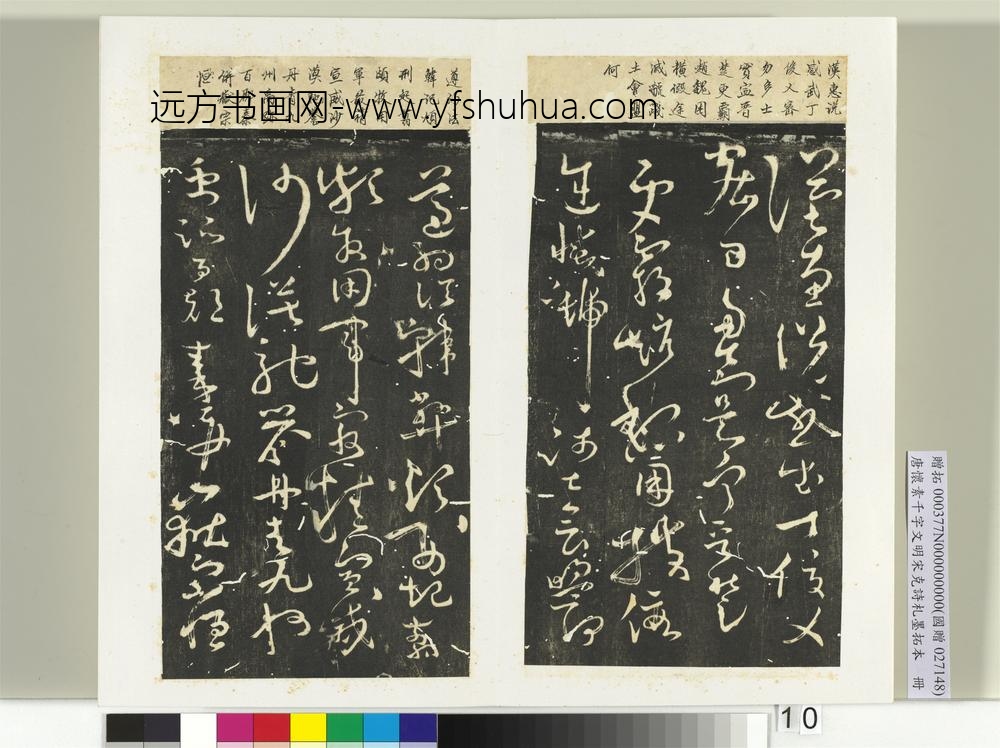 远方书画网-www.yfshuhua.com
漢惠説
感武丁
俊乂密
勿多士
寔寧晉
楚更霸
趙魏困
橫假途
滅虢踐
土會盟
何
漢惠説感武丁俊乂
密勿多士寔寧晉楚
更霸趙魏困橫假
途滅虢踐土會盟何
遵約法
韓弊煩
刑起翦
頗牧用
軍最精
宣威沙
漠馳譽
丹青九
州禹跡
百郡秦
併嶽宗
恒
遵約法韓弊煩刑起翦
頗牧用軍最精宣威
沙漠馳譽丹青九州
禹跡百郡秦并嶽宗恒
贈拓 000377N000000000(國贈 027148)
唐懷素千字文明宋克詩札墨拓本 冊
10